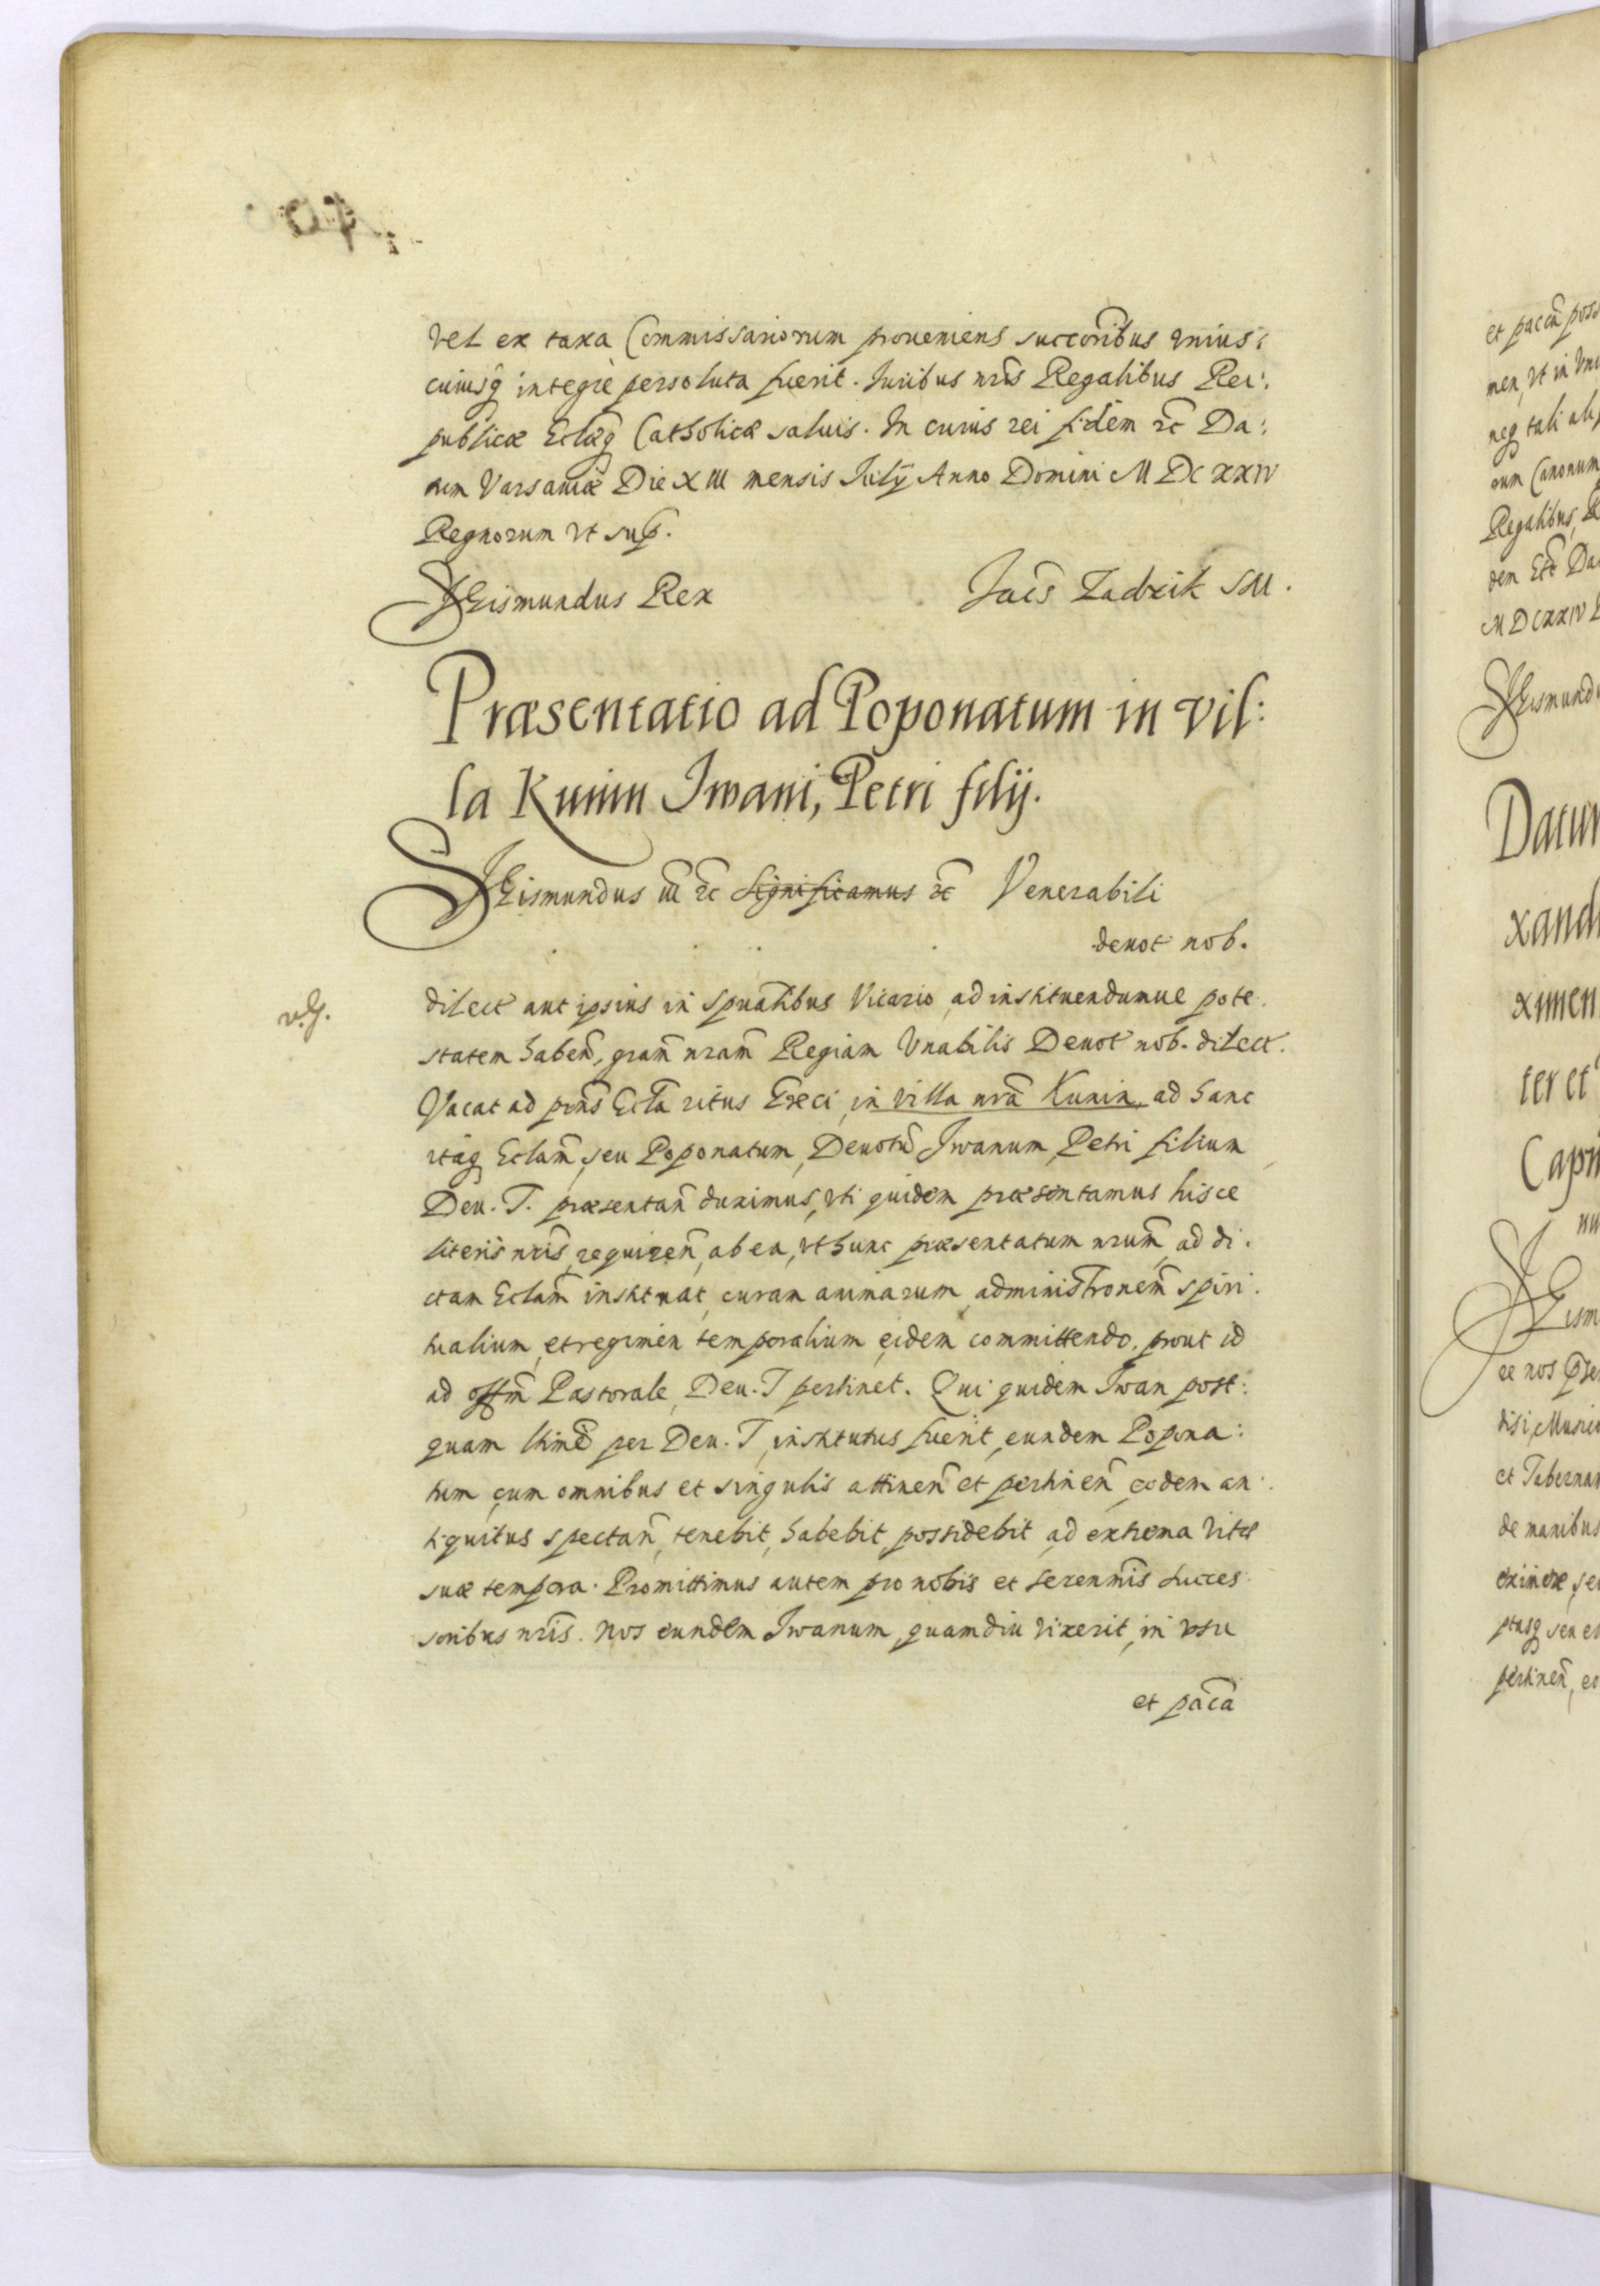 vel ex taxa Commissariorum proueniens succoribus vnius:
cuiusq integre persoluta fuerit. Iuribus nris Regalibus Rei:
publicæ Eclæq Catholicæ saluis. In cuius rei fidem etc Da:
tum Varsauiæ Die XIII mensis Iulij Anno Domini M DC XXIV
Regnorum vt sup.
Sigismundus Rex Jacs Zadzik SM.
Præsentatio ad Poponatum in vil:
la Kunin Iwani, Petri filij.
Sigismundus III etc Significamus etc Venerabili
deuot nob.
v.g.
dilect aut ipsius in spualibus Vicario, ad instituendumue pote
statem haben, gram nram Regiam Vnabilis Deuot nob. dilect.
Vacat ad pns Ecla ritus Græci, in villa nra Kunin, ad hanc
itaq Eclam, seu Poponatum, Deuotu Iwanum Petri filium
Deu. T. præsentan duximus, vti quidem præsentamus hisce
literis nris, requiren, ab ea, vt hunc præsentatum nrum, ad di:
ctam Eclam instituat, curam animarum, administronem spiri:
tualium, et regimen temporalium eidem committendo, prout id
ad offm Pastorale, Deu. T pertinet. Qui quidem Iwan post:
quam ltime per Deu. T, institutus fuerit, eundem Popona:
tum, cum omnibus et singulis attinen et pertinen, eodem an:
tiquitus spectan, tenebit, habebit, possidebit, ad extrema vitæ
suæ tempora. Promittimus autem pro nobis et Serenmis Succes
soribus nris. Nos eundem Iwanum, quamdiu vixerit, in vsu
et paca
et paccã poss
men, vt in
neq tali ali
rum Canonum
Regalibus, R
dem Etc Da
M DCXXIV
Sigismund
Datum
xand
ximen
ter et
Capi
Sigism
ee nos
disi, Munic
et Tabernar
de manibus
eximere, seu
ptasq seu
pertinen, eo